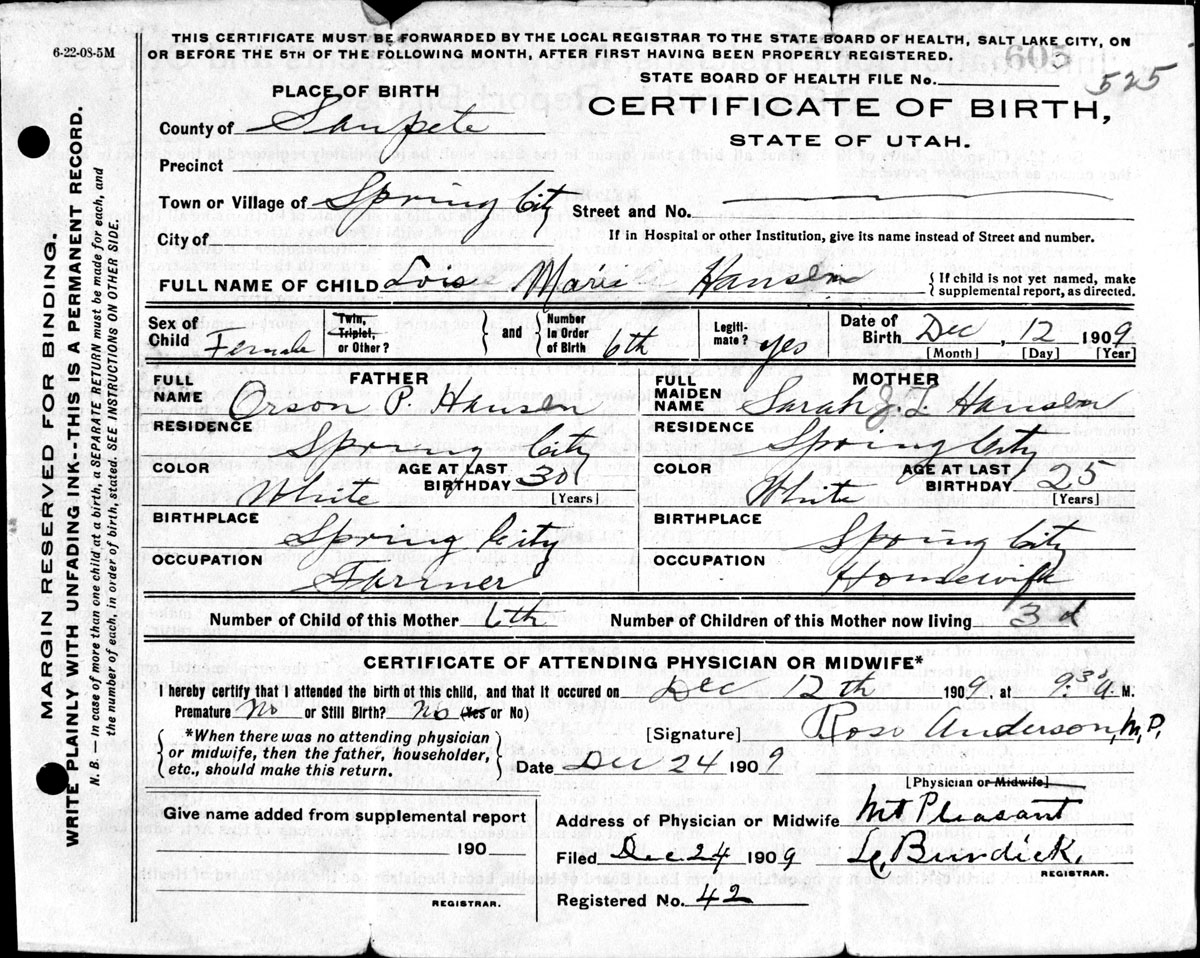 6-22-08-5M
THIS CERTIFICATE MUST BE FORWARDED BY THE LOCAL REGISTRAR TO THE STATE BOARD OF HEALTH, SALT LAKE CITY, ON
OR BEFORE THE 5TH OF THE FOLLOWING MONTH, AFTER FIRST HAVING BEEN PROPERLY REGISTERED.
605
STATE BOARD OF HEALTH FILE No. 525
PLACE OF BIRTH
CERTIFICATE OF BIRTH,
STATE OF UTAH.
County of Sanpete
Precinct
Town or Village of Spring City
Street and No.
City of
If in Hospital or other Institution, give its name instead of Street and number.
FULL NAME OF CHILD Lois Marie Hansen { If child is not yet named, make
supplemental report, as directed.
Sex of Child Female
Twin, Triplet, or Other?
and
Number in Order of Birth 6th
Legitimate? yes
Date of Birth Dec, 12 1909
[Month] [Day] [Year]
FATHER
FULL NAME Orson P. Hansen
MOTHER
FULL MAIDEN NAME Sarah J. L Hansen
RESIDENCE Spring City
RESIDENCE Spring City
COLOR White AGE AT LAST BIRTHDAY 30 [Years]
COLOR White AGE AT LAST BIRTHDAY 25 [Years]
BIRTHPLACE Spring City
BIRTHPLACE Spring City
OCCUPATION Farmer
OCCUPATION Housewife
Number of Child of this Mother 6th Number of Children of this Mother now living 3d
CERTIFICATE OF ATTENDING PHYSICIAN OR MIDWIFE*
I hereby certify that I attended the birth ot this child, and that it occured on Dec 12th 1909, at 9.30 a M.
Premature No or Still Birth? No (Yes or No)
[Signature] Anderson, M.P.
*When there was no attending physician
or midwife, then the father, householder,
etc., should make this return.
Date Dec 24 1909
[Physician or Midwife]
Give name added from supplemental report
190
REGISTRAR.
Address of Physician or Midwife Mt Pleasant
Filed Dec. 24 1909 Burdick.
REGISTRAR.
Registered No. 42
MARGIN RESERVED FOR BINDING.
WRITE PLAINLY WITH UNFADING INK--THIS IS A PERMANENT RECORD.
N. B. — In case of more than one child at a birth, a SEPARATE RETURN must be made for each, and
the number of each, in order of birth, stated. SEE INSTRUCTIONS ON OTHER SIDE.